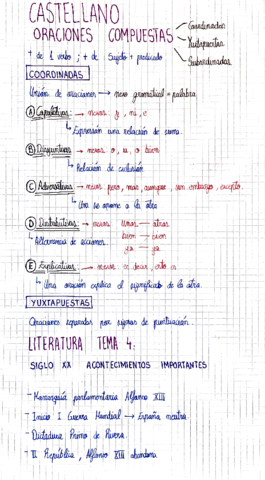 CASTELLANO
ORACIONES COMPUESTAS
Coordinadas
Yuxtapuestas
Subordinadas
+ de 1 verbo ; + de Sujeto + predicado
COORDINADAS
Unión de oraciones → nexo gramatical = palabra.
A Copulativas: → nexos y, ni, e
↳ Expresan una relación de suma.
B Disyuntivas → nexos o, u, o bien
↳ Relación de exclusión
C Adversativas → nexos pero, mas, aunque, sin embargo, excepto.
↳ Una se opone a la otra
D Distributivas: → nexos unos — otros
bien — bien
ya — ya
↳ Alternancia de acciones.
E Explicativas → nexos es decir, esto es
↳ Una oración explica el significado de la otra.
YUXTAPUESTAS
Oraciones separadas por signos de puntuación.
LITERATURA TEMA 4:
SIGLO XX ACONTECIMIENTOS IMPORTANTES
- Monarquía parlamentaria Alfonso XIII
- Inicio I Guerra Mundial → España neutra.
- Dictadura Primo de Rivera.
- II República, Alfonso XIII abandona